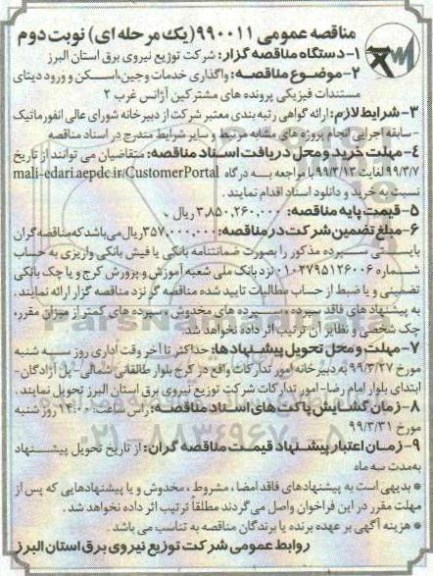 مناقصه عمومی ۹۹۰۰۱۱ (یک مرحله ای) نوبت دوم
۱- دستگاه مناقصه گزار: شرکت توزیع نیروی برق استان البرز
۲- موضوع مناقصه: واگذاری خدمات وجین، اسکن و ورود دیتای
مستندات فیزیکی پرونده های مشترکین آژانس غرب ۲
۳- شرایط لازم: ارائه گواهی رتبه بندی معتبر شرکت از دبیرخانه شورای عالی انفورماتیک
- سابقه اجرایی انجام پروژه های مشابه مرتبط و سایر شرایط مندرج در اسناد مناقصه
۴- مهلت خرید و محل دریافت اسناد مناقصه: متقاضیان می توانند از تاریخ
۹۹/۳/۷ لغایت ۹۹/۳/۱۳ با مراجعه به درگاه mali-edari.aepdc.ir/CustomerPortal
نسبت به خرید و دانلود اسناد اقدام نمایند.
۵- قیمت پایه مناقصه: ۳,۸۵۰,۲۶۰,۰۰۰ ریال
۶- مبلغ تضمین شرکت در مناقصه: ۳۵۷,۰۰۰,۰۰۰ ریال می باشد که مناقصه گران
بایستی سپرده مذکور را بصورت ضمانتنامه بانکی یا فیش بانکی واریزی به حساب
شماره ۰۱۰۲۷۹۵۱۲۶۰۰۶ نزد بانک ملی شعبه آموزش و پرورش کرج و یا چک بانکی
تضمینی و یا ضبط از حساب مطالبات تایید شده مناقصه گر نزد مناقصه گزار ارائه نمایند.
به پیشنهاد های فاقد سپرده، سپرده های مخدوش، سپرده های کمتر از میزان مقرر،
چک شخصی و نظایر آن ترتیب اثر داده نخواهد شد.
۷- مهلت و محل تحویل پیشنهادها: حداکثر تا آخر وقت اداری روز سه شنبه
مورخ ۹۹/۳/۲۷ به دبیرخانه امور تدارکات واقع در کرج بلوار طالقانی شمالی- پل آزادگان-
ابتدای بلوار امام رضا- امور تدارکات شرکت توزیع نیروی برق استان البرز تحویل نمایند.
۸- زمان گشایش پاکت های اسناد مناقصه: راس ساعت ۱۴:۰۰ روز شنبه
مورخ ۹۹/۳/۳۱
۹- زمان اعتبار پیشنهاد قیمت مناقصه گران: از تاریخ تحویل پیشنهاد
به مدت سه ماه
* بدیهی است به پیشنهادهای فاقد امضا، مشروط، مخدوش و یا پیشنهادهایی که پس از
مهلت مقرر در این فراخوان واصل می گردند مطلقاً ترتیب اثر داده نخواهد شد.
* هزینه آگهی بر عهده برنده یا برندگان مناقصه به تناسب می باشد.
روابط عمومی شرکت توزیع نیروی برق استان البرز